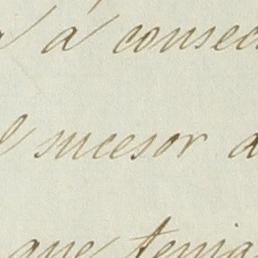 á consec
sucesor d
que tenia